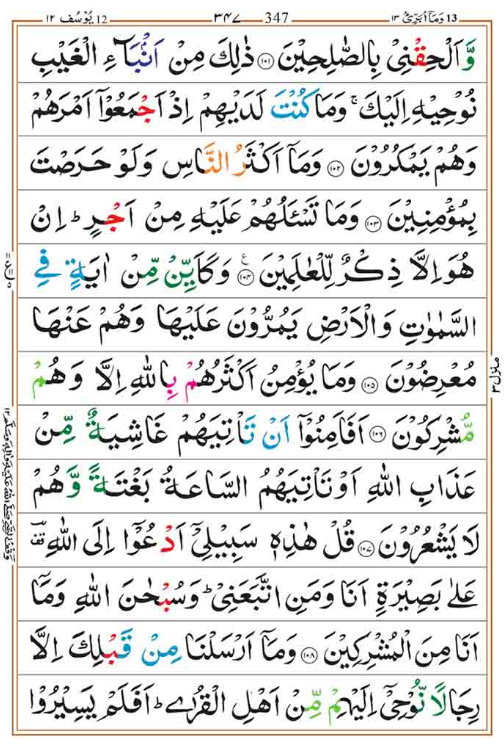 12 يُوْسُف ١٢ 347 ٣٤٧ 13 وَمَآ اُبَرِّئُ ١٣
وَّاَلْحِقْنِیْ بِالصّٰلِحِیْنَ ۝۱۰۱ ذٰلِكَ مِنْ اَنْۢبَآءِ الْغَیْبِ
نُوْحِیْهِ اِلَیْكَ ۚ وَمَا كُنْتَ لَدَیْهِمْ اِذْ اَجْمَعُوْۤا اَمْرَهُمْ
وَهُمْ یَمْكُرُوْنَ ۝۱۰۲ وَمَاۤ اَكْثَرُ النَّاسِ وَلَوْ حَرَصْتَ
بِمُؤْمِنِیْنَ ۝۱۰۳ وَمَا تَسْـَٔلُهُمْ عَلَیْهِ مِنْ اَجْرٍ ؕ اِنْ
هُوَ اِلَّا ذِكْرٌ لِّلْعٰلَمِیْنَ ۝۱۰۴ ع وَكَاَیِّنْ مِّنْ اٰیَةٍ فِی
السَّمٰوٰتِ وَالْاَرْضِ یَمُرُّوْنَ عَلَیْهَا وَهُمْ عَنْهَا
مُعْرِضُوْنَ ۝۱۰۵ وَمَا یُؤْمِنُ اَكْثَرُهُمْ بِاللّٰهِ اِلَّا وَهُمْ
مُّشْرِكُوْنَ ۝۱۰۶ اَفَاَمِنُوْۤا اَنْ تَاْتِیَهُمْ غَاشِیَةٌ مِّنْ
عَذَابِ اللّٰهِ اَوْ تَاْتِیَهُمُ السَّاعَةُ بَغْتَةً وَّهُمْ
لَا یَشْعُرُوْنَ ۝۱۰۷ قُلْ هٰذِهٖ سَبِیْلِیْۤ اَدْعُوْۤا اِلَی اللّٰهِ ؔ۫
عَلٰی بَصِیْرَةٍ اَنَا وَمَنِ اتَّبَعَنِیْ ؕ وَسُبْحٰنَ اللّٰهِ وَمَاۤ
اَنَا مِنَ الْمُشْرِكِیْنَ ۝۱۰۸ وَمَاۤ اَرْسَلْنَا مِنْ قَبْلِكَ اِلَّا
رِجَالًا نُّوْحِیْۤ اِلَیْهِمْ مِّنْ اَهْلِ الْقُرٰی ؕ اَفَلَمْ یَسِیْرُوْا
منزل ٣